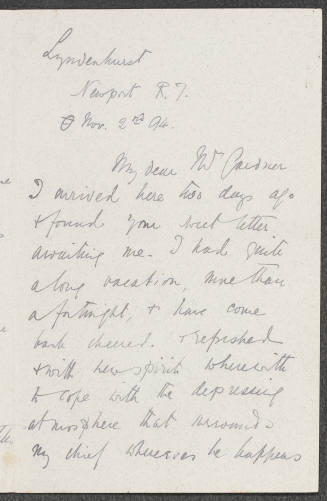 Lyndenhurst
Newport R.I.
Nov. 2nd 94.
My dear Mrs Gardner
I arrived here two days ago
& found your sweet letter
awaiting me. I had quite
a long vacation, more than
a fortnight, & have come
back cheered & refreshed
& with new spirit wherewith
to cope with the depressing
atmosphere that surrounds
my chief wherever he happens